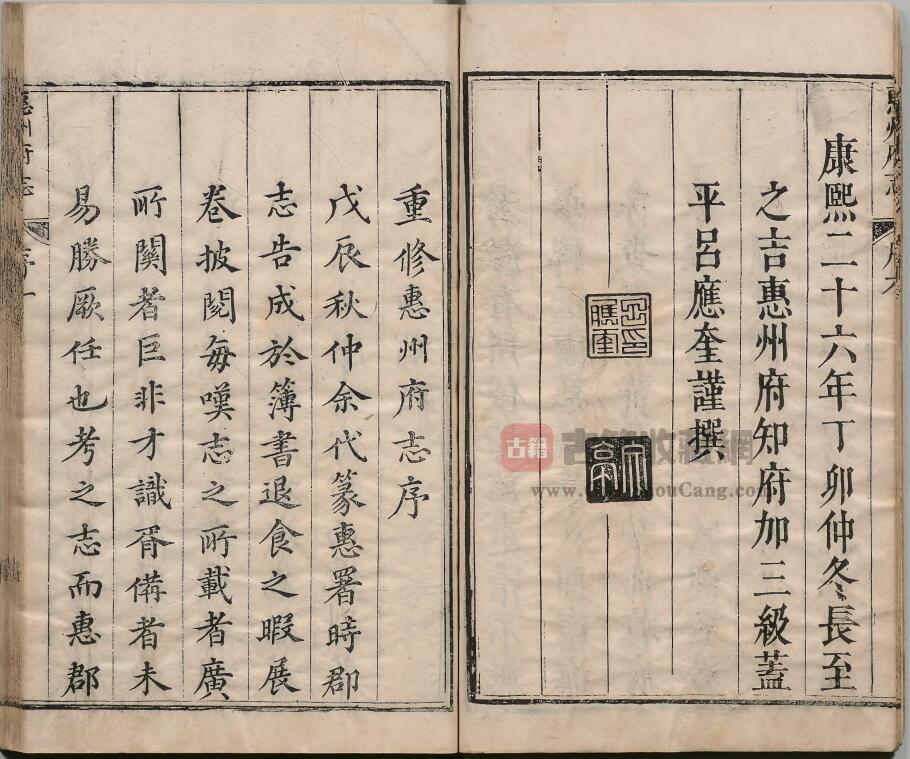 康熙二十六年丁卯仲冬長至
之吉惠州府知府加三級蓋
平呂應奎謹撰
重修惠州府志序
戊辰秋仲余代篆惠署時郡
志告成於簿書退食之暇展
卷披閱每嘆志之所載者廣
所關者巨非才識胥備者未
易勝厥任也考之志而惠郡
惠州府志
序一
惠州府志
序
古籍
古籍收藏網
www.
ouCang.com